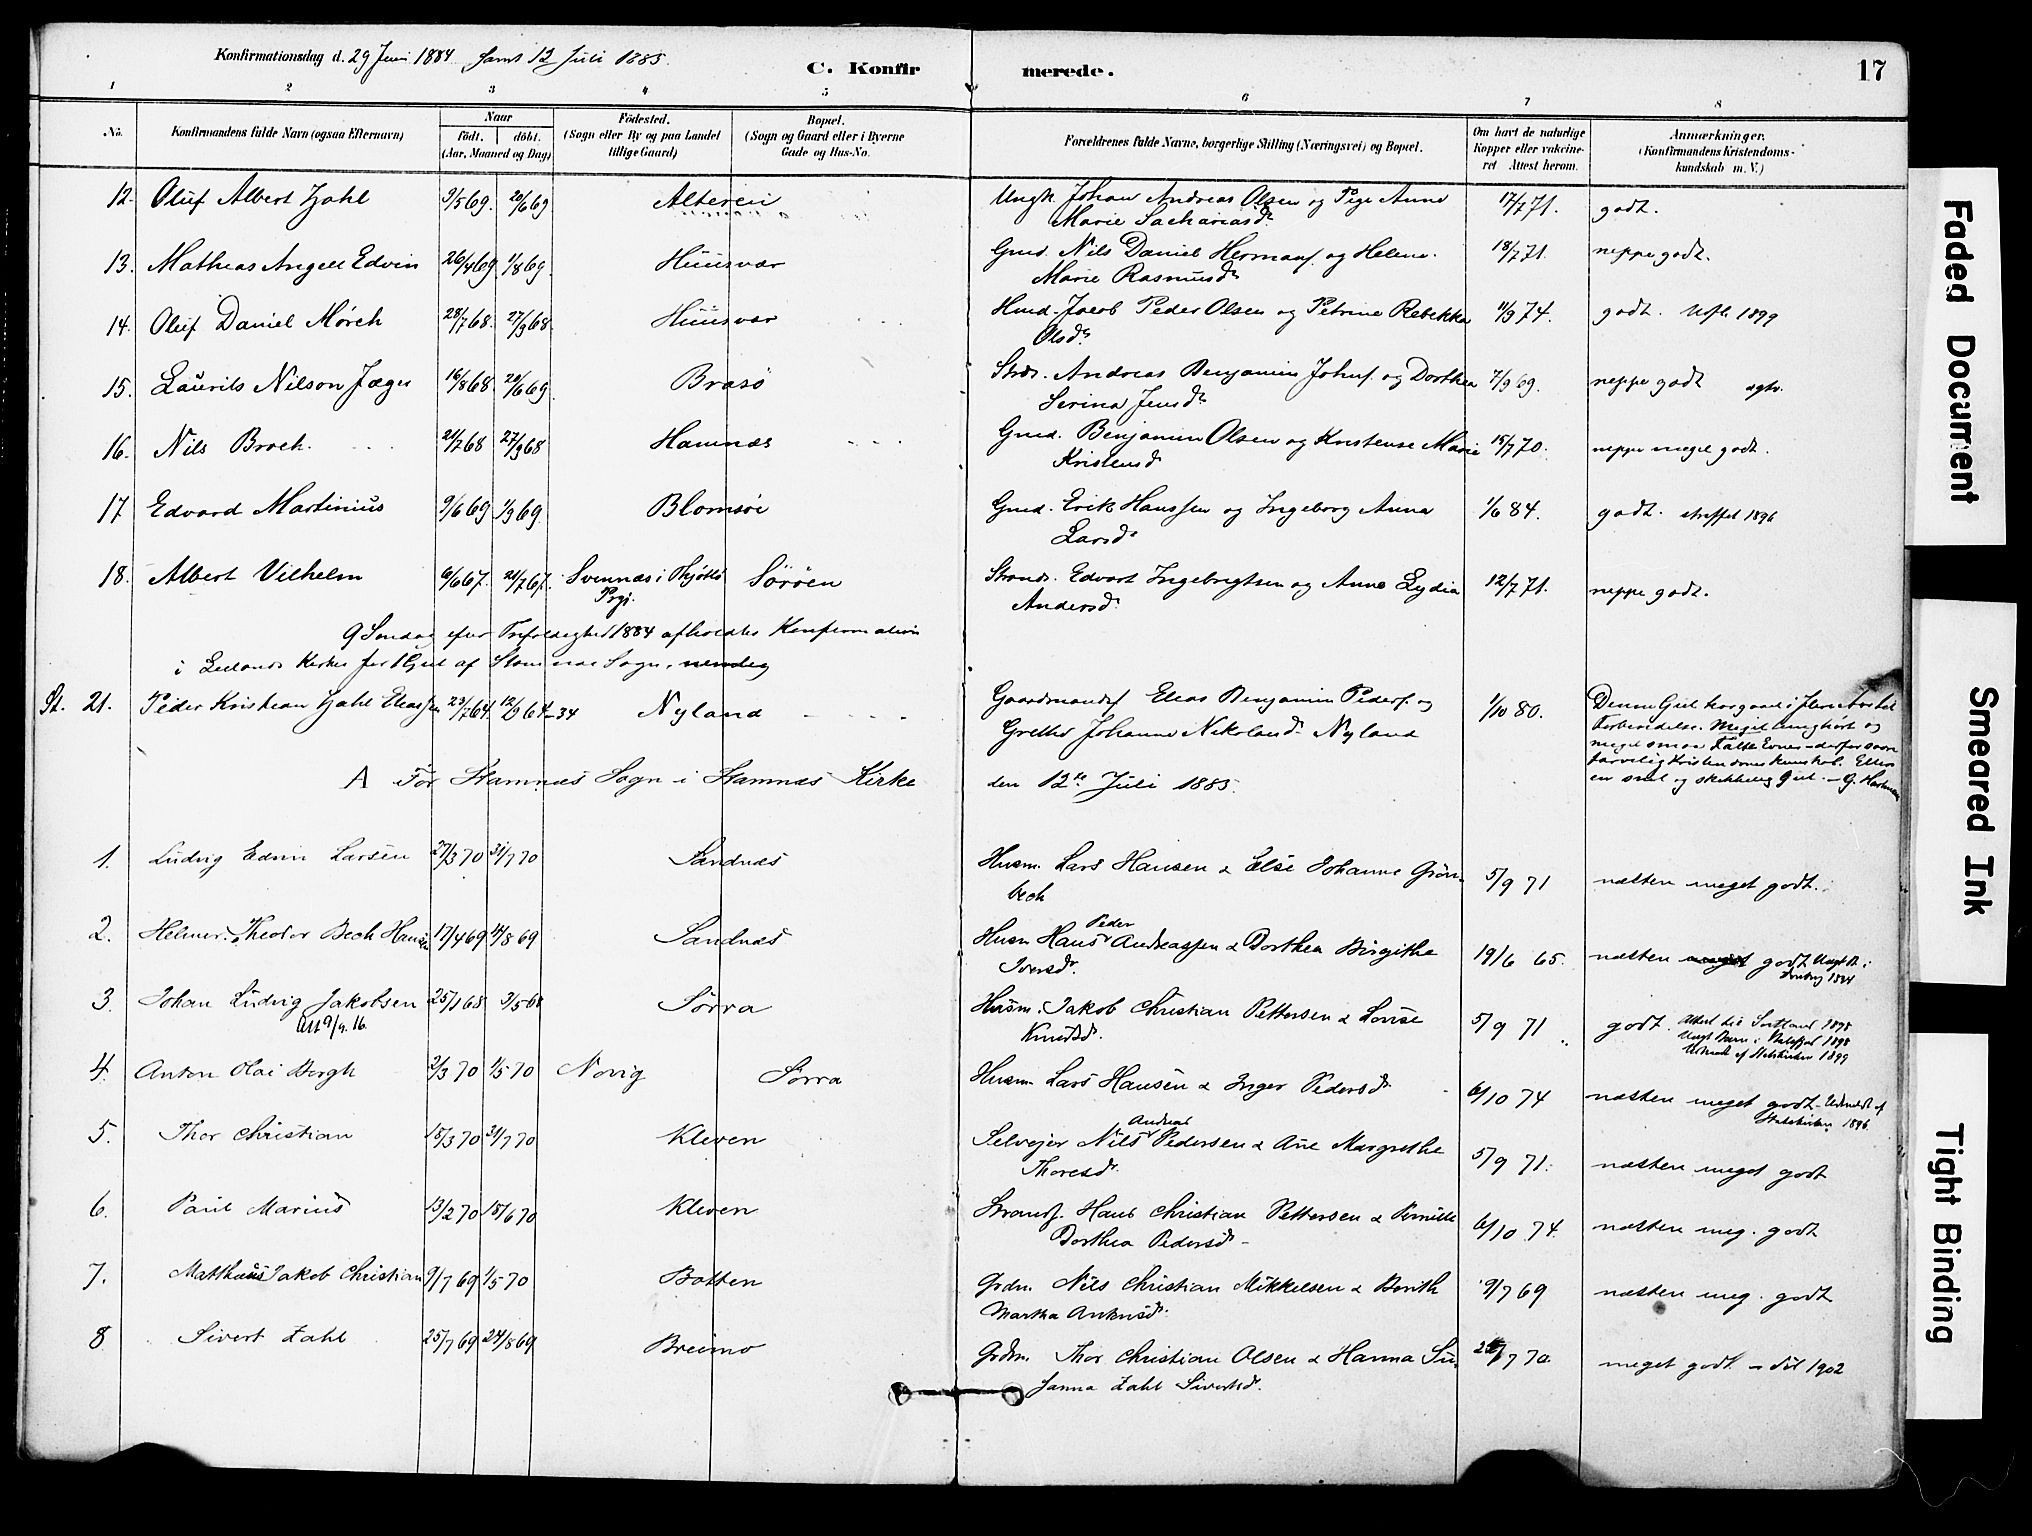 Konfirmationsdag d. 29 Juni 1884 samt 12 Juli 1885.
C. Konfir merede. 17
1 2 3 4 5 6 7 8
No. Konfirmandens fulde Navn (ogsaa Efternavn) Naar födt. döbt. (Aar, Maaned og Dag) Födested. (Sogn eller By og paa Landet tillige Gaard) Bopæl. (Sogn og Gaard eller i Byerne Gade og Hus-No. Forældrenes fulde Navne, borgerlige Stilling (Næringsvei) og Bopæl. Om havt de naturlige Kopper eller vakcineret Attest herom. Anmærkninger. (Konfirmandens Kristendomskundskab m. V.)
12. Oluf Albert Zahl 3/5 69. 20/6 69 Alteren Ungk. Johan Andreas Olsen og Pige Anne 17/7 71. godt.
Marie Sachariasd.
13. Mathias Angell Edvin 26/4 69 1/8 69. Huusvær Gmd. Nils Daniel Hermans. og Helene 18/7 71. neppe godt.
Marie Rasmusd.
14. Oluf Daniel Mørch 28/7 68. 27/9 68 Huusvær Hmd. Jacob Peder Olsen og Petrine Rebekka 11/9 74. godt. Udfl. 1899
Olsd.
15. Laurits Nilson Jæger 16/8 68 20/6 69. Brasø Strds. Andreas Benjamin Johns. og Dorthea 7/9 69. neppe godt
Serina Jensd.
16. Nils Broch 21/7 68 27/9 68 Hamnæs Gmd. Benjamin Olsen og Kristense Marie 15/7 70. neppe meget godt.
Kristensd
17 Edvard Martinius 9/6 69 1/9 69. Blomsöe Gmd. Erik Hanssen og Ingeborg Anna 1/6 84. godt. straffet 1896
Larsd.
18. Albert Vilhelm 6/6 67. 21/7 67. Svennæs i Thjøttø Sörøen Strands. Edvart Ingebrigtsen og Anne Lydia 12/7 71. neppe godt.
Prgj. Andersd.
9 Søndag efter Trefoldighed 1884 afholdtes Konfirmation
i Leilands Kirke for 1 Gut af Stamnæs Sogn, nemlig
St. 21. Peder Kristian Zahl Eliassen 23/7 64. 12/9 64 - 34 Nyland Gaardmands. Elias Benjamin Peders. og 1/10 80. Denne Gut har gaaet i flere Aar til
Grethe Johanna Nikolaisd. Nyland Forberedelse. Meget tunghørt og
meget smaa Fatte Evner - derfor saare
A For Stamnæs Sogn i Stamnæs Kirke den 12te Juli 1885. farvelig Kristendoms kunskab. Ellers
en snil og skikkelig Gut. - G.
1. Ludvig Edvin Larsen 27/3 70 31/7 70 Sandnæs Husm. Lars Hansen & Else Johanne Grön- 5/9 71 næsten meget godt.
bech
2. Helmer Theodor Bech Hansen 17/4 69 14/8 69 Sandnæs Husm Hans Peder Andreassen & Dorthea Birgithe 19/6 65. næsten meget godt
Iversd.
3. Johan Ludvig Jakobsen 25/1 68 3/5 68 Sörra Husm. Jakob Christian Pettersen & Lovise 5/9 71 godt. Attest til Sortland 1898
Att 9/9. 16. Knudsd. Udmeldt af Statskirken 1899
4. Anton Olai Bergh 2/3 70 1/5 70 Novig Sörra Husm Lars Hansen & Inger Pedersd. 6/10 74 næsten meget godt - Udmeldt af
Statskirken 1896.
5. Thor Christian 15/3 70 31/7 70 Kleven Selvejer Nils Andreas Pedersen & Ane Margrethe 5/9 71. næsten meget godt
Thoresd.
6. Paul Marius 13/2 70 15/6 70 Kleven Strands. Hans Christian Pettersen & Pernille 6/10 74. næsten meg. godt
Dorthea Pedersd -
7. Matthæus Jakob Christian 9/7 69 1/5 70 Botten Grdm. Nils Christian Mikkelsen & Berith 9/7 69 næsten meg. godt
Martha Antonsd.
8 Sivert Zahl 25/7 69 24/8 69 Breimo Grdm. Thor Christian Olsen & Hanna Su- 7 70. meget godt - död 1902
sanna Zahl Sivertsd.
Faded Document
Smeared Ink
Tight Binding